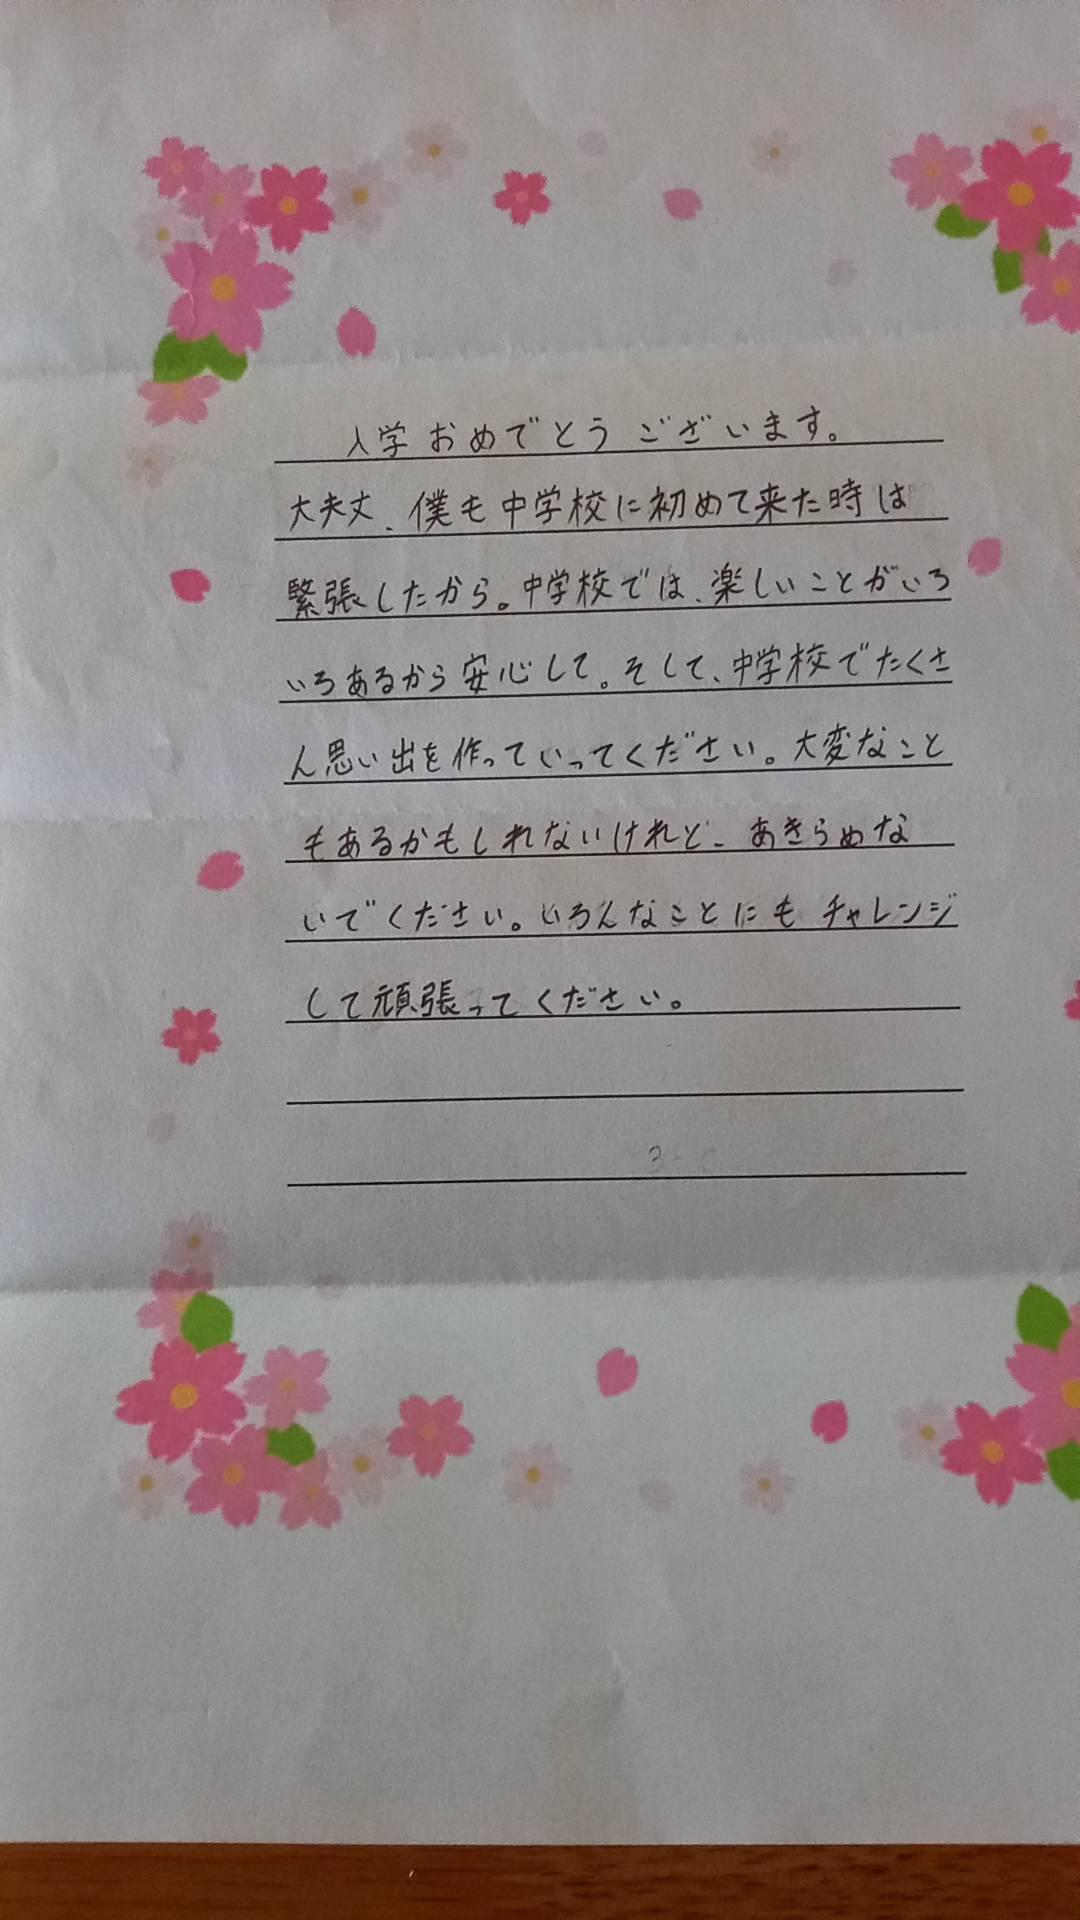 入学おめでとうございます。
大夫丈、僕も中学校に初めて来た時は
緊張したから。中学校では、楽しいことがいろ
いろあるから安心して。そして、中学校でたくさ
ん思い出を作っていってください。大変なこと
もあるかもしれないけれど、あきらめな
いでください。いろんなことにもチャレンジ
して頑張ってください。